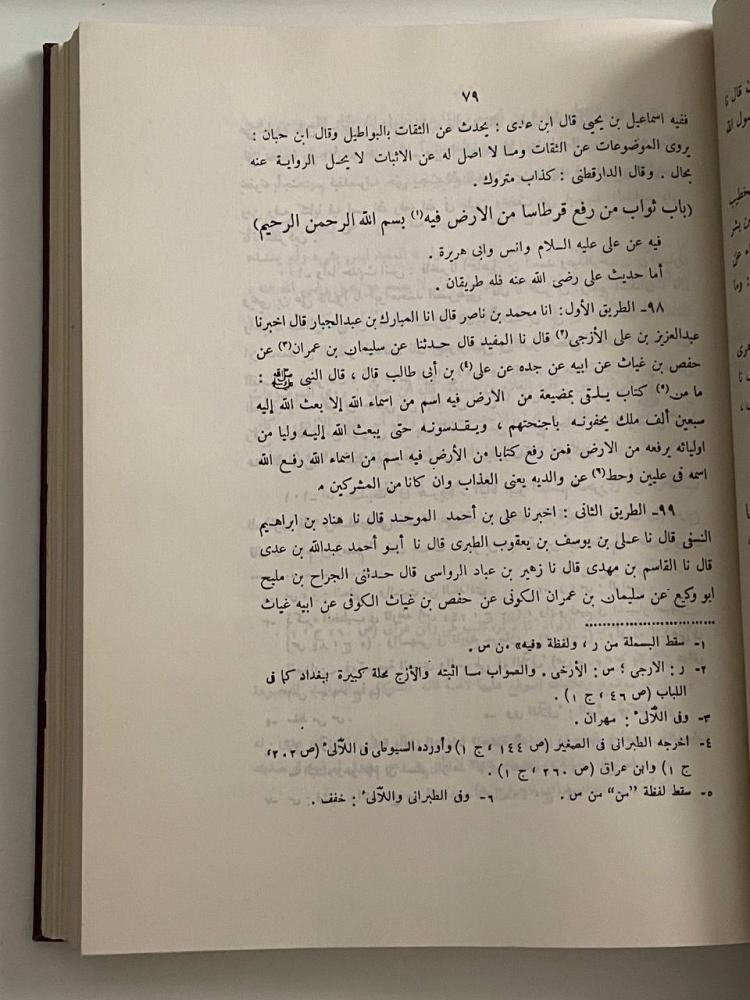 ٧٩
ففيه اسماعيل بن يحيى قال ابن عدى : يحدث عن الثقات بالبواطيل وقال ابن حبان :
يروى الموضوعات عن الثقات وما لا اصل له عن الاثبات لا يحل الرواية عنه
بحال . وقال الدارقطنى : كذاب متروك .
(باب ثواب من رفع قرطاسا من الارض فيه(١) بسم الله الرحمن الرحيم)
فيه عن على عليه السلام وانس وابى هريرة .
أما حديث على رضى الله عنه فله طريقان .
٩٨- الطريق الأول: انا محمد بن ناصر قال انا المبارك بن عبدالجبار قال اخبرنا
عبدالعزيز بن على الأزجى(٢) قال نا المفيد قال حدثنا عن سليمان بن عمران(٣) عن
حفص بن غياث عن ابيه عن جده عن على(٤) بن أبى طالب قال ، قال النبى ﷺ :
ما من(٥) كتاب يلقى بمضيعة من الارض فيه اسم من اسماء الله إلا بعث الله إليه
سبعين ألف ملك يحفونه باجنحتهم ، ويقدسونه حتى يبعث الله إليه وليا من
اوليائه يرفعه من الارض فمن رفع كتابا من الأرض فيه اسم من اسماء الله رفع الله
اسمه فى عليين وحط(٦) عن والديه يعنى العذاب وان كانا من المشركين .
٩٩- الطريق الثانى : اخبرنا على بن أحمد الموحد قال نا هناد بن ابراهيم
النسفى قال نا على بن يوسف بن يعقوب الطبرى قال نا أبو أحمد عبدالله بن عدى
قال نا القاسم بن مهدى قال نا زهير بن عباد الرواسى قال حدثنى الجراح بن مليح
ابو وكيع عن سليمان بن عمران الكوفى عن حفص بن غياث الكوفى عن ابيه غياث
١- سقط البسملة من ر ، ولفظة «فيه» من س .
٢- ر : الارجى ؛ س : الأرخى . والصواب ما اثبته والأزج محلة كبيرة ببغداد كما فى
اللباب (ص ٤٦ ، ج ١) .
٣- وفى اللآلىء : مهران .
٤- اخرجه الطبرانى فى الصغير (ص ١٤٤ ، ج ١) وأورده السيوطى فى اللآلىء (ص ٢٠٢ ،
ج ١) وابن عراق (ص ٢٦٠ ، ج ١) .
٥- سقط لفظة "من" من س . ٦- وفى الطبرانى واللآلىء : خفف .